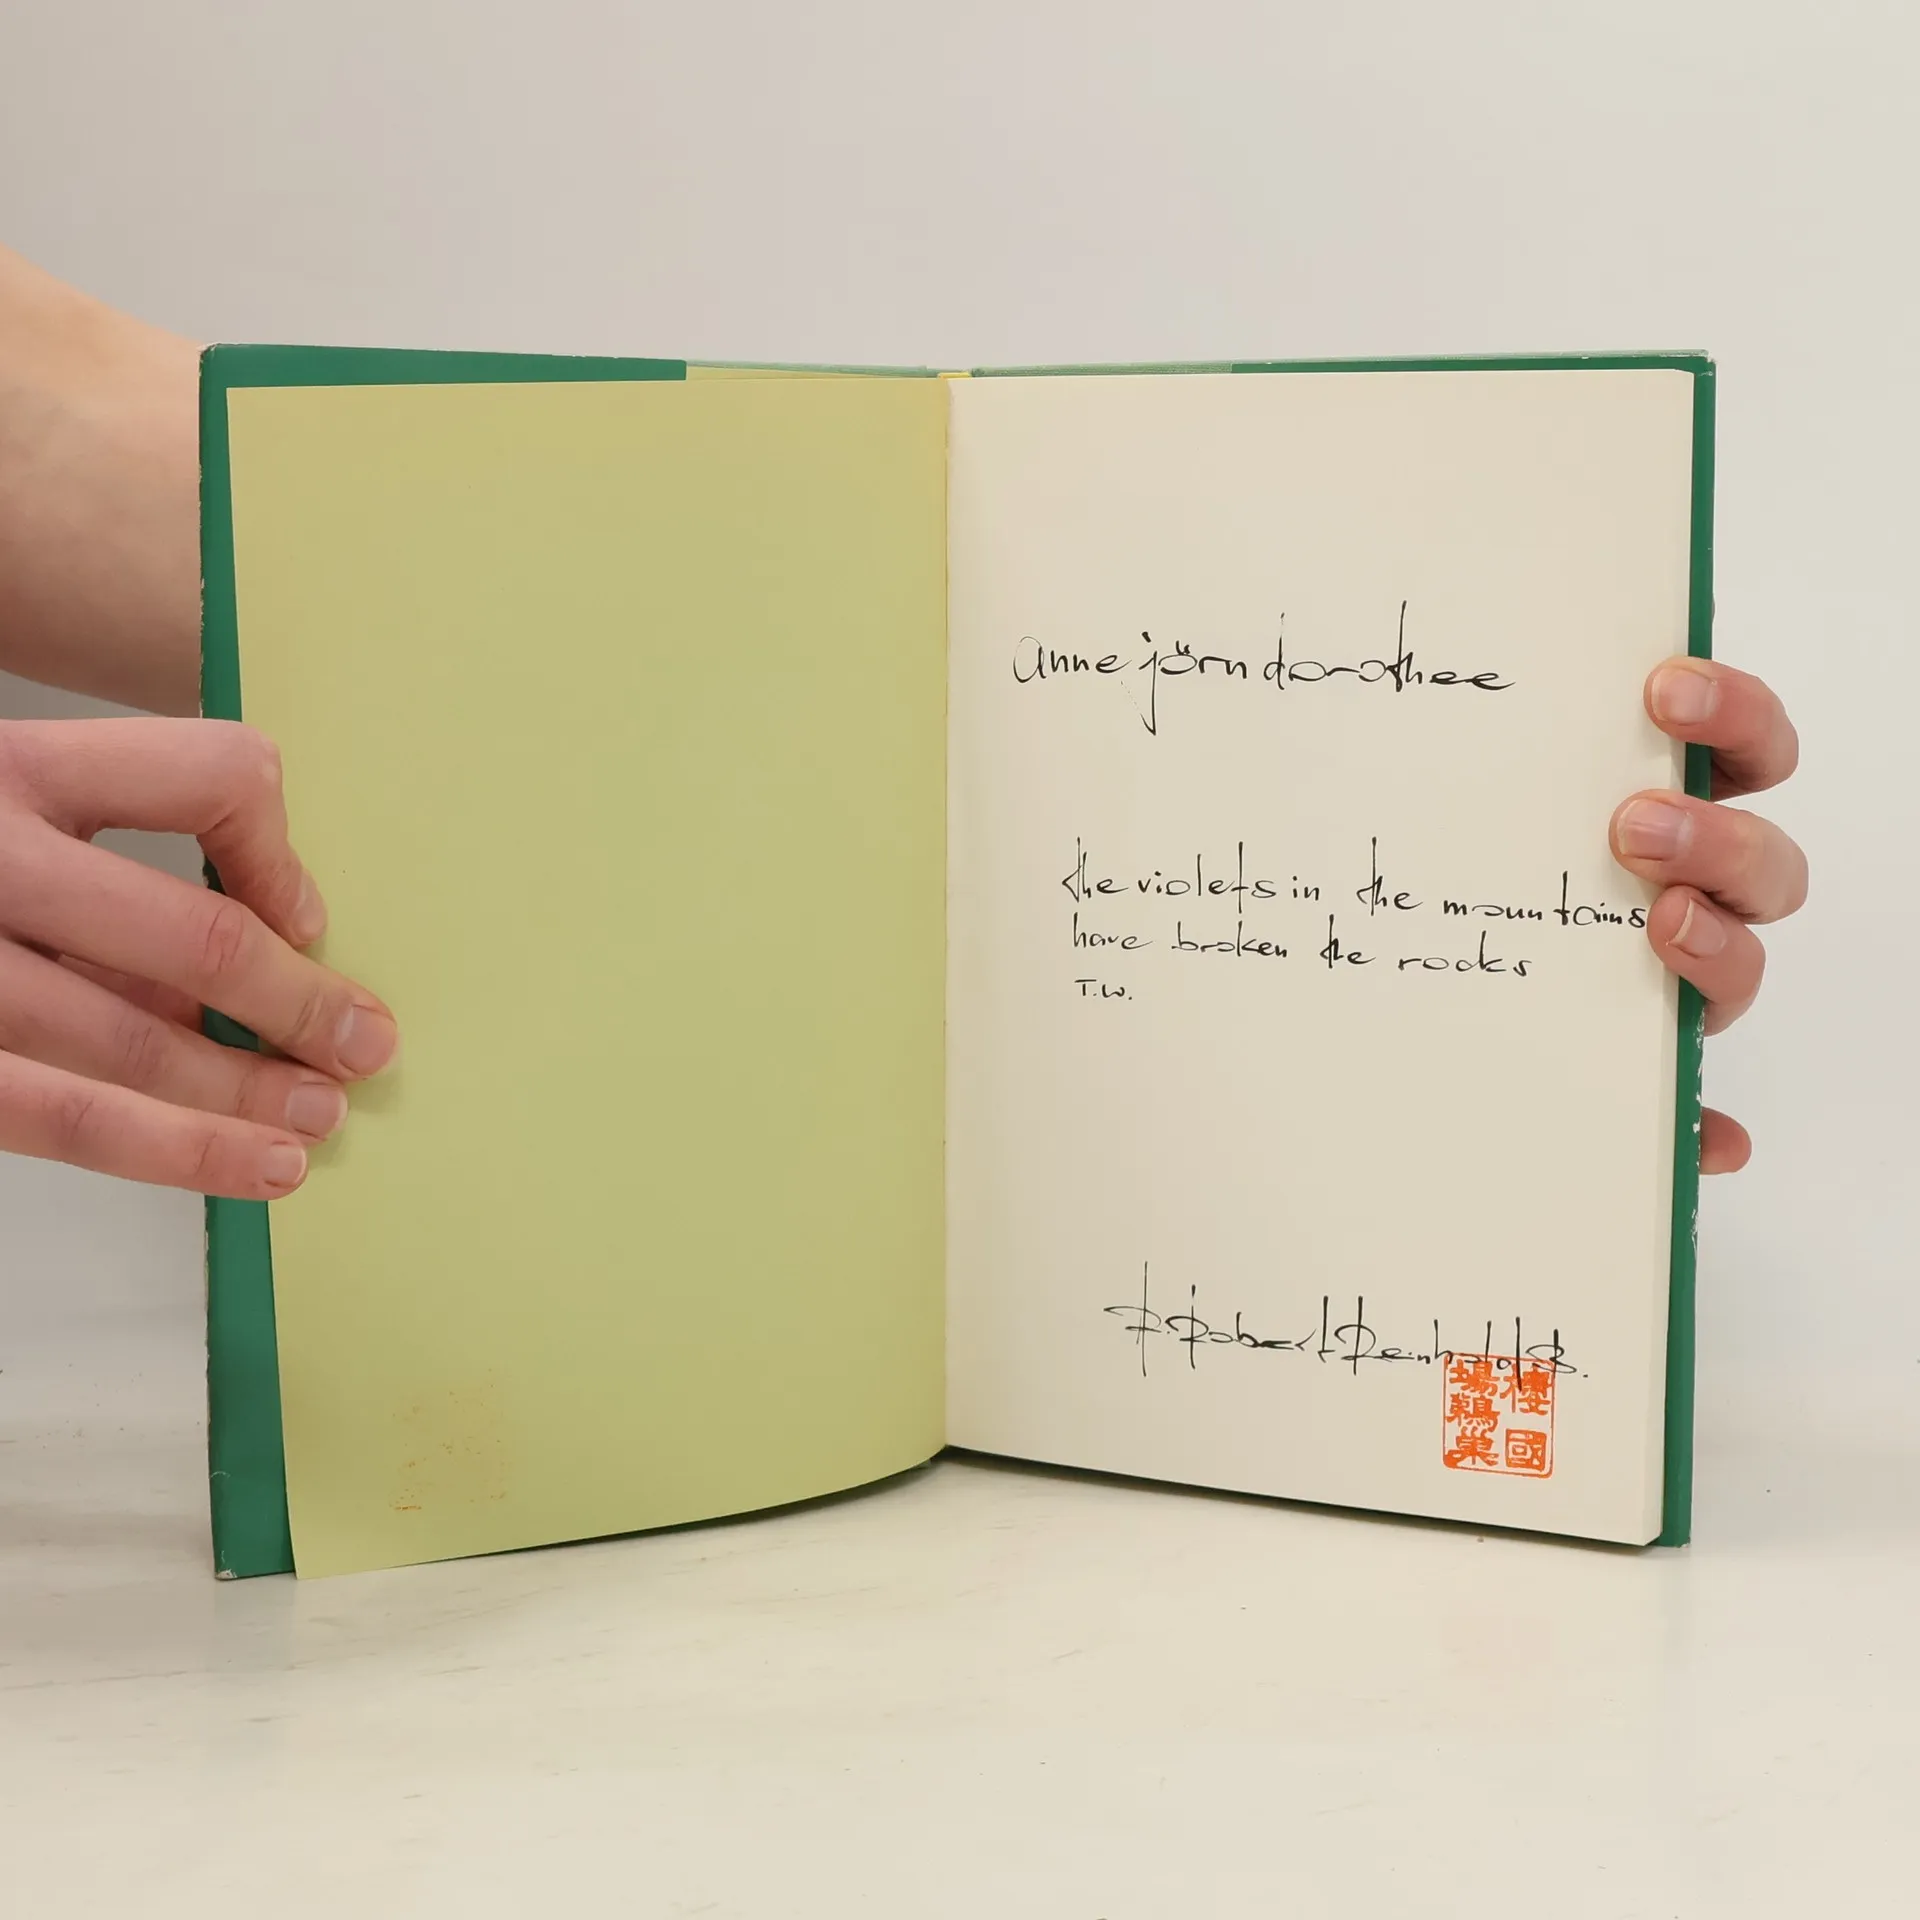 anne jörn dorothee
the violets in the mountains
have broken the rocks
T.W.
R. Robert Reinhold B.
樓國
場鶏巣